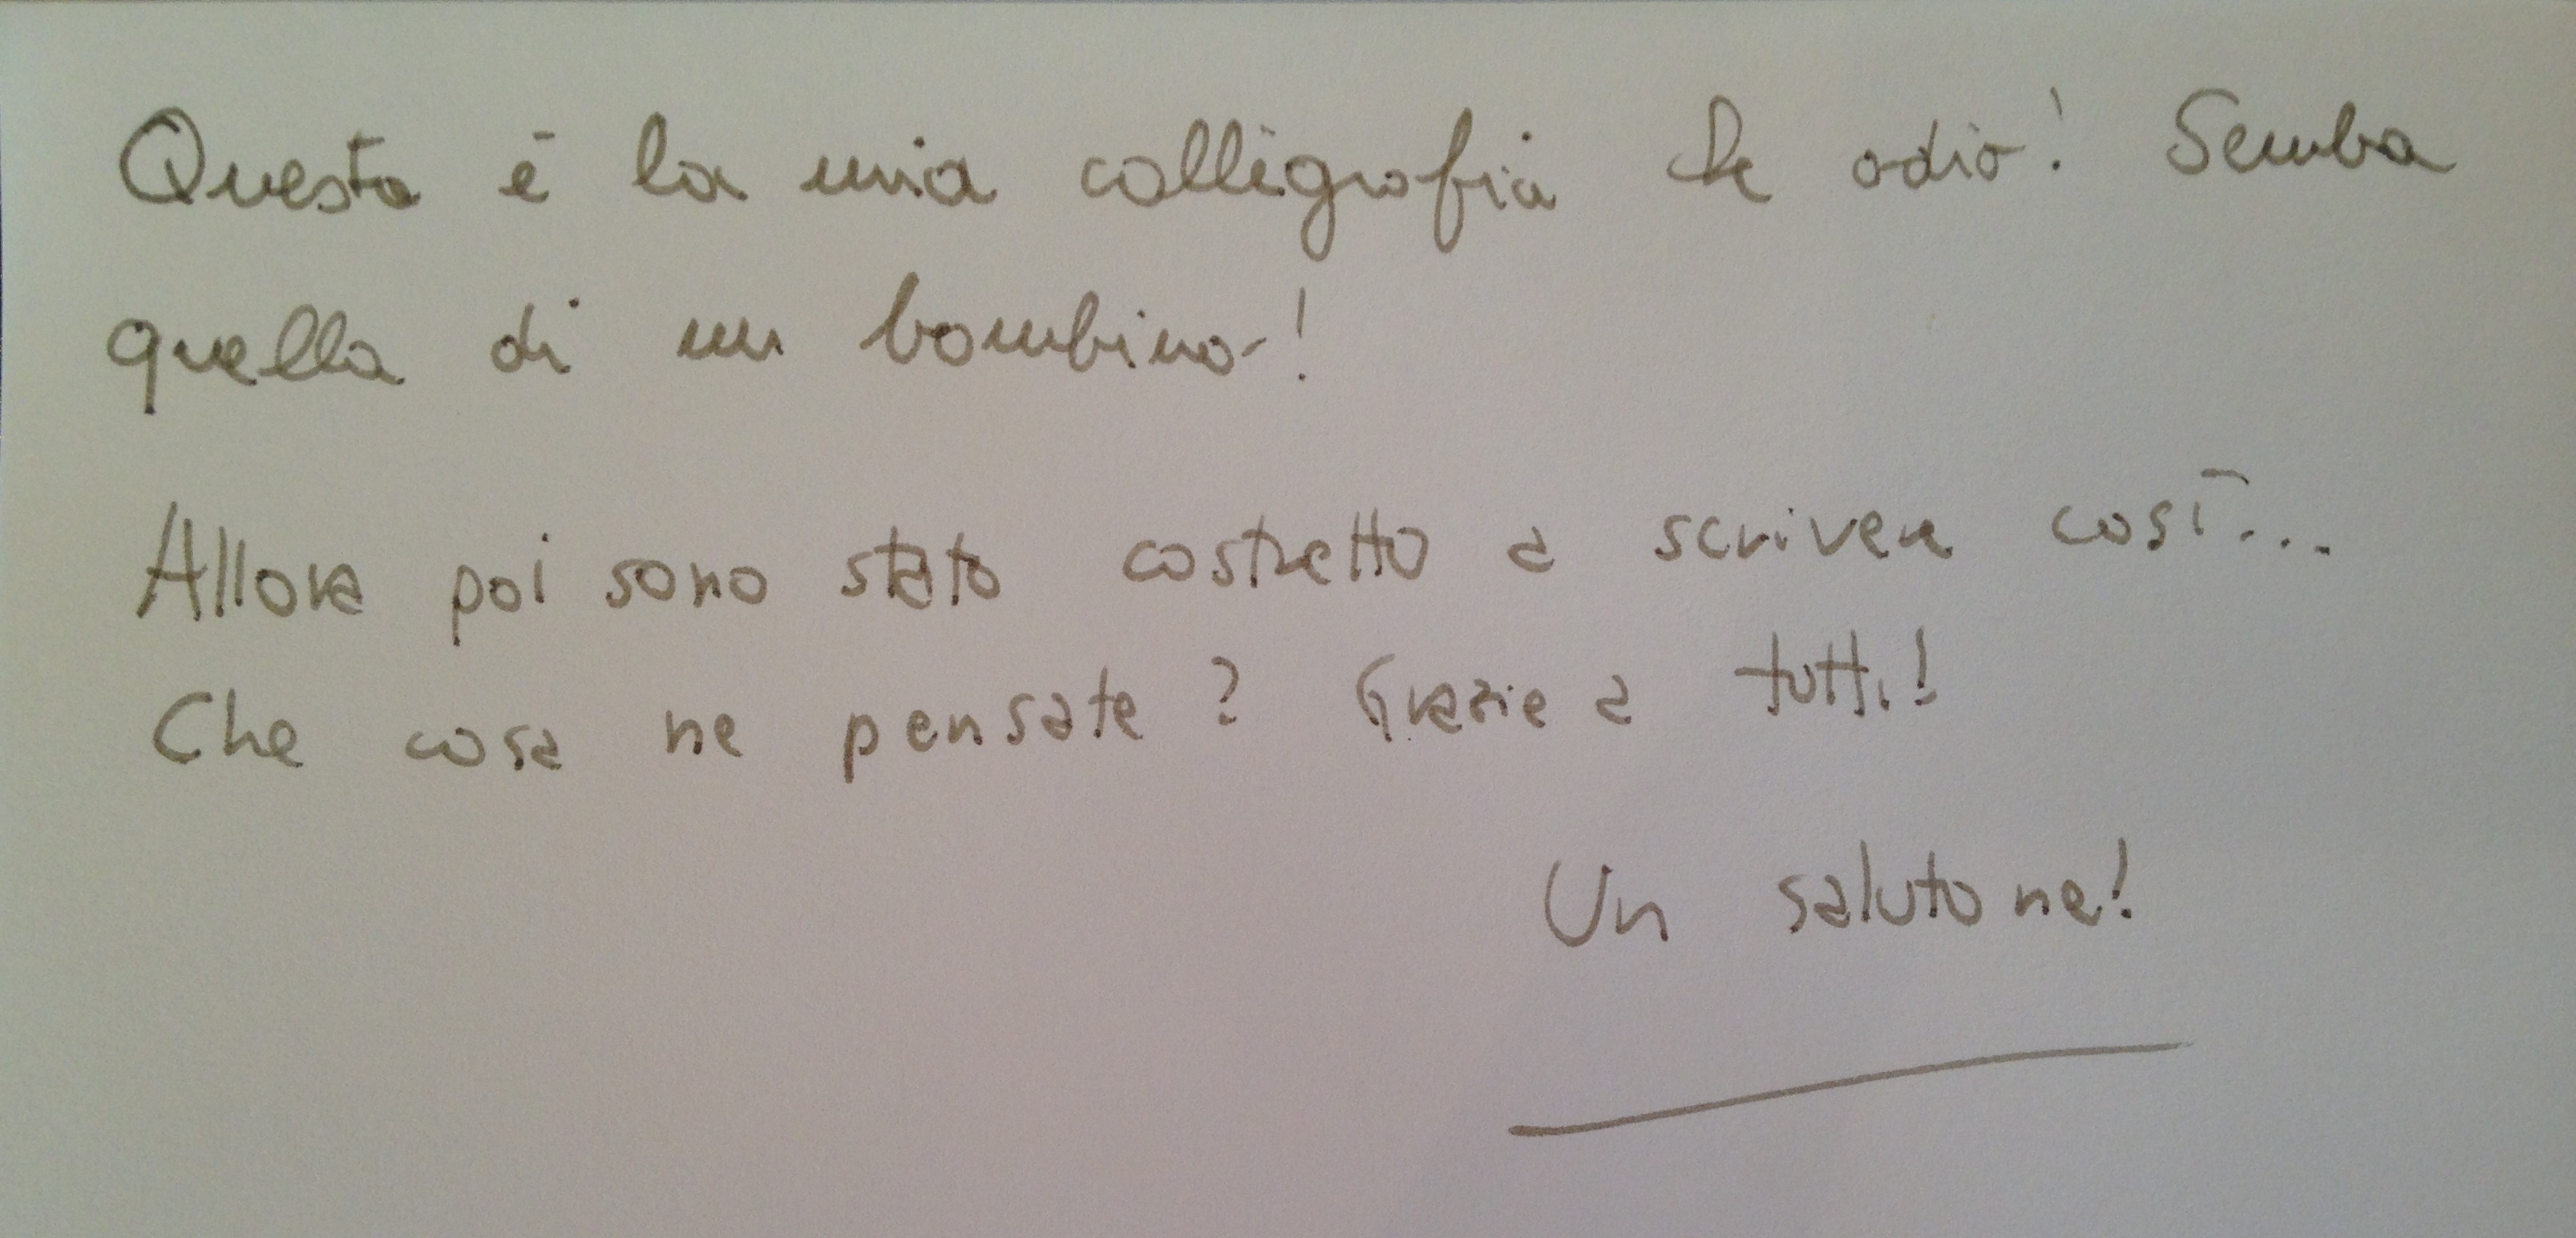 Questa è la mia calligrafia la odio! Semba
quella di un bambino!
Allora poi sono stato costretto a scrivere così...
Che cosa ne pensate? Grazie a tutti!
Un salutone!